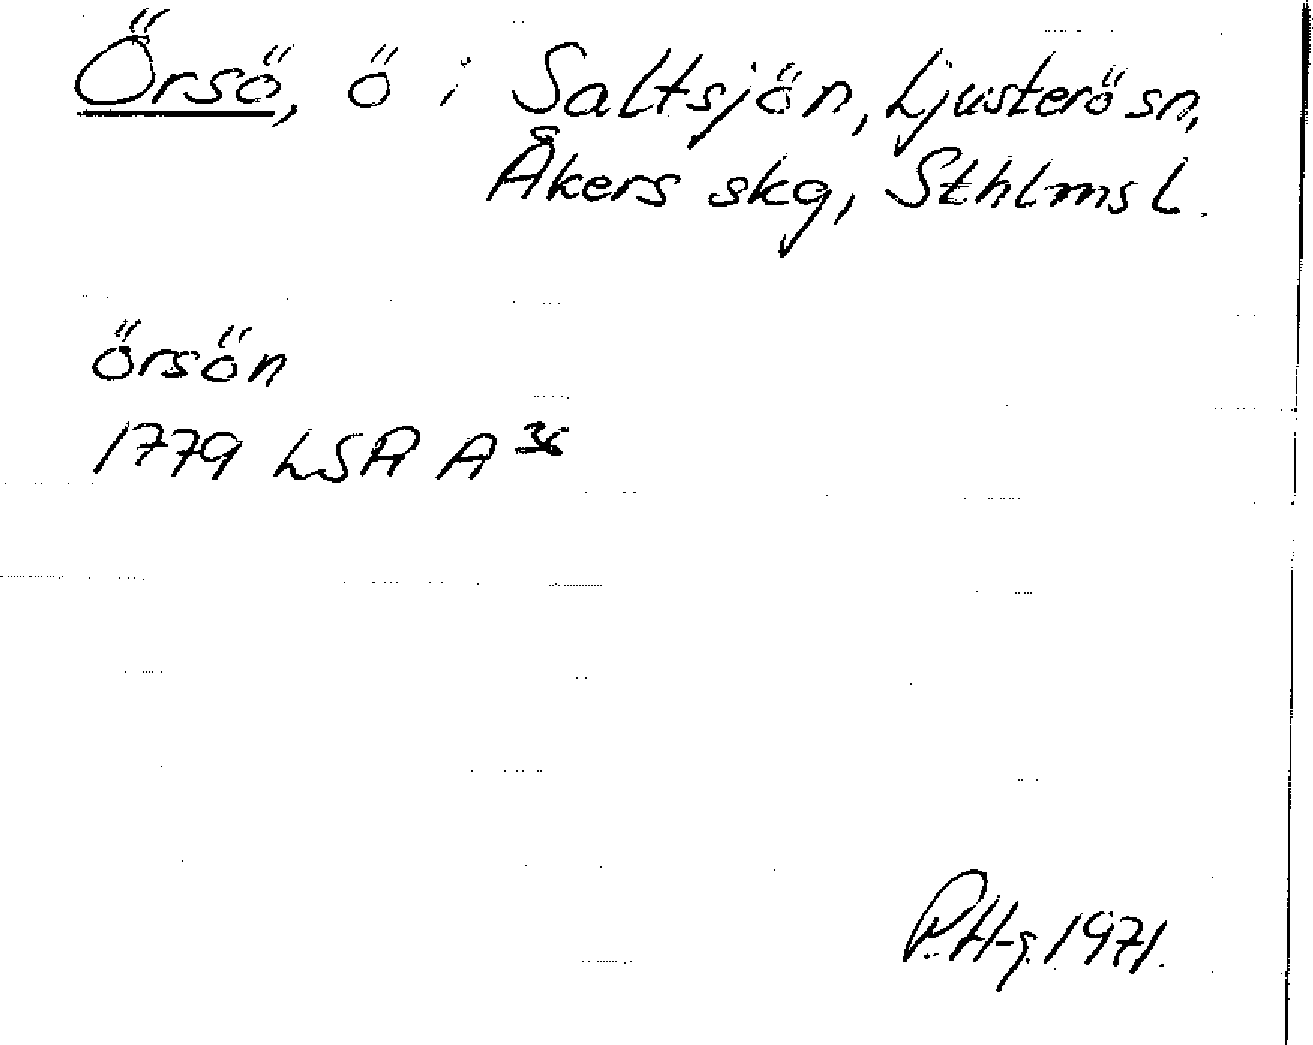 Örsö, ö i Saltsjön, Ljusterö sn,
Åkers skg, Sthlms l.
örsön
1779 LSA A³⁶
P.H-g. 1971.